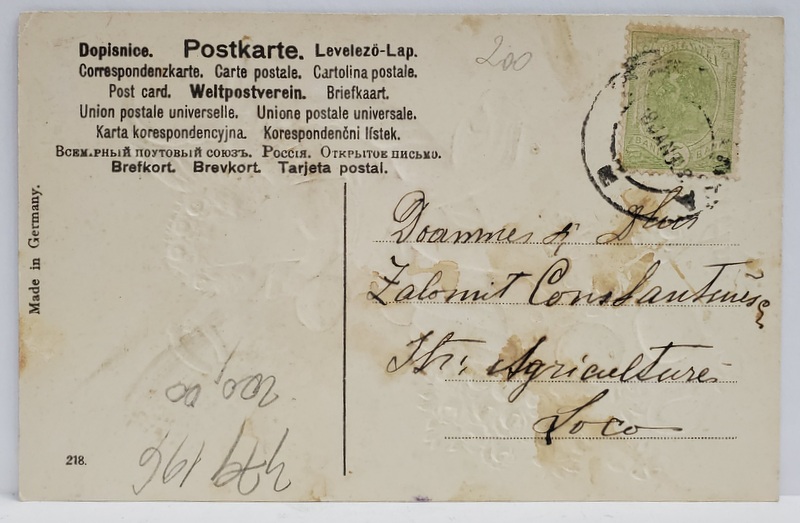 Dopisnice. Postkarte. Levelezö-Lap.
Correspondenzkarte. Carte postale. Cartolina postale.
Post card. Weltpostverein. Briefkaart.
Union postale universelle. Unione postale universale.
Karta korespondencyjna. Korespondenčni lístek.
Всем.рный поутовый союзъ. Россія. Открытое письмо.
Brefkort. Brevkort. Tarjeta postal.
200
ROMANIA
Made in Germany.
Zalomit
Str. Agriculturei
Loco
200,00
218.